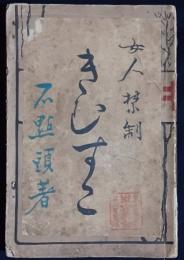 女人禁制
きむすこ
石點頭著